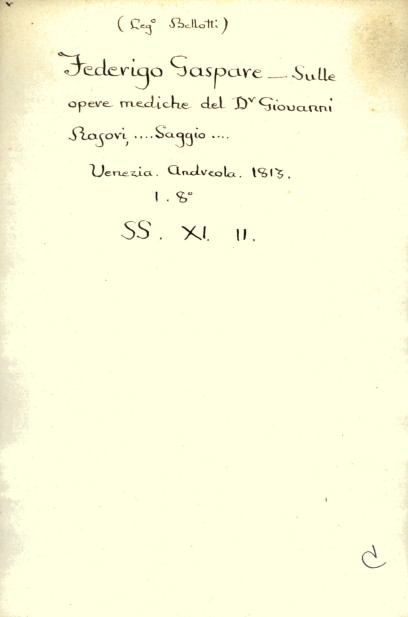 (Leg° Bellotti)
Federigo Gaspare — Sulle
opere mediche del Dr Giovanni
Rasori, .... Saggio ....
Venezia. Andreola. 1813.
1. 8°
SS. XI. 11.